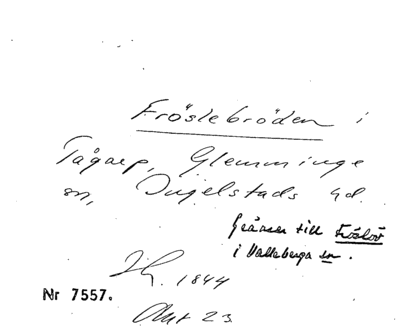 Fröslebröden i
Tågarp, Glemminge
sn, Ingelstads hd.
Gränsar till Fröslöv
i Valleberga sn.
1844
Nr 7557.
Akt 23